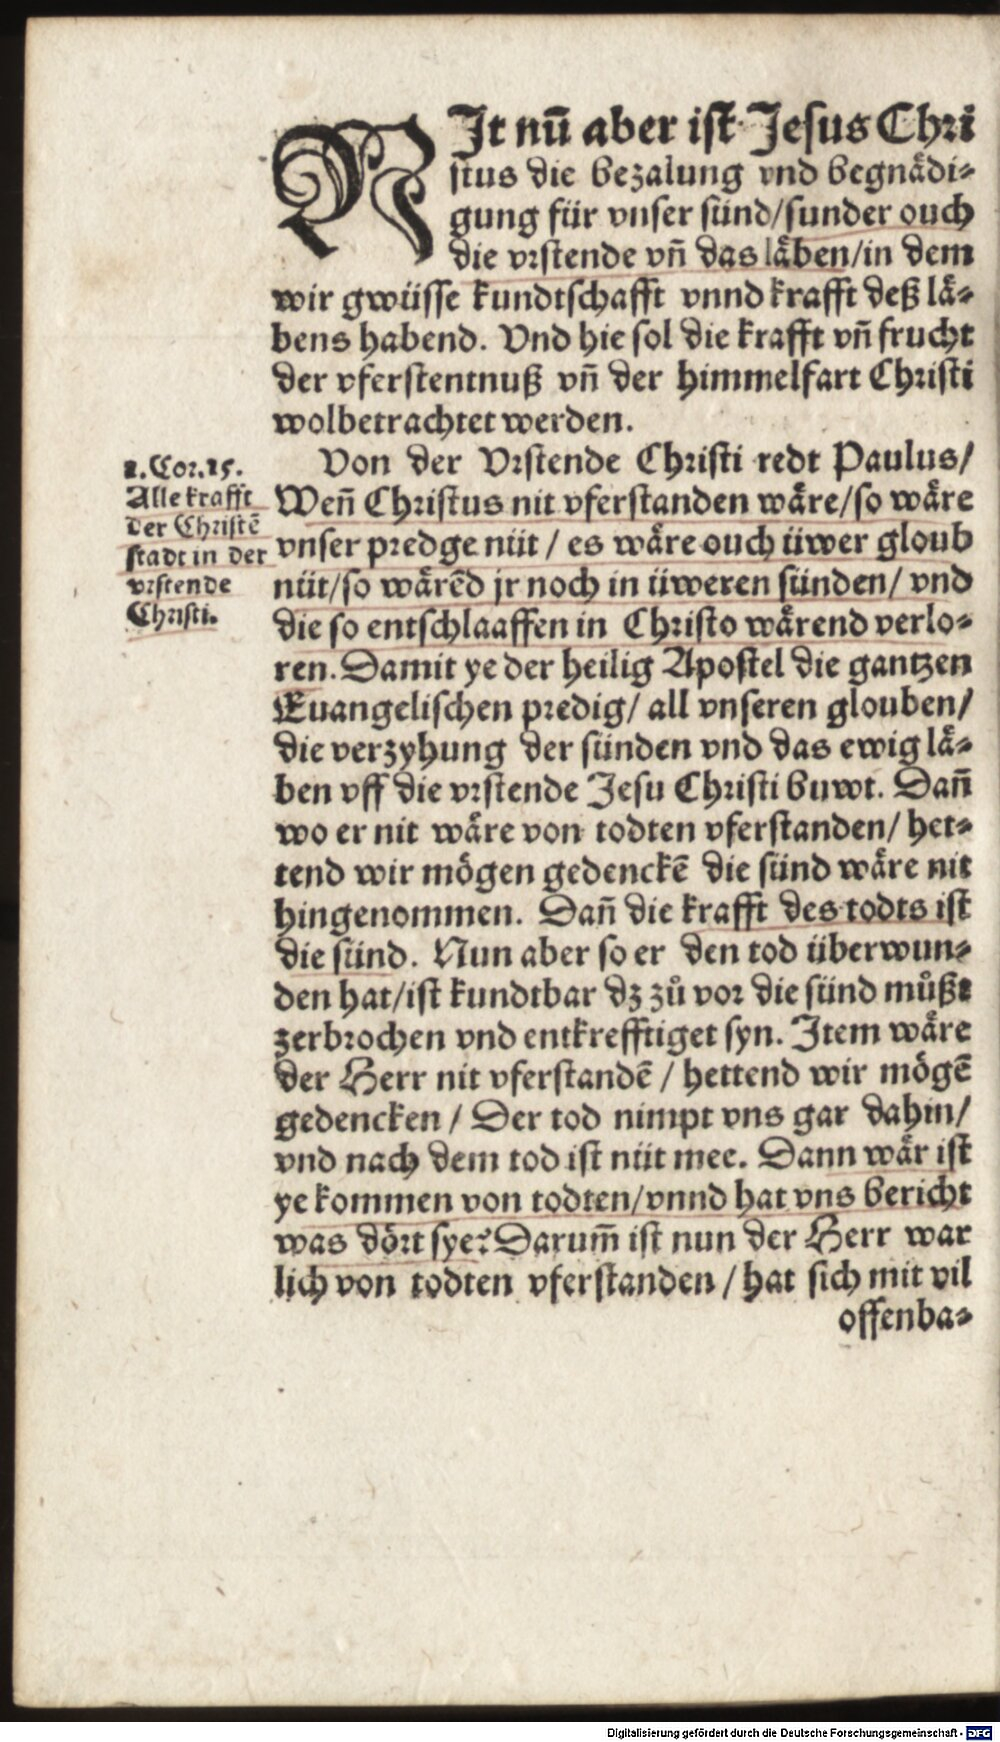 NJt nū aber ist Jesus Chri
stus die bezalung vnd begnådi-
gung für vnser sünd/sunder ouch
die vrstende vñ das låben/in dem
wir gwüsse kundtschafft vnnd krafft deß lå-
bens habend. Vnd hie sol die krafft vñ frucht
der vferstentnuß vñ der himmelfart Christi
wolbetrachtet werden.
Von der Vrstende Christi redt Paulus/
Weñ Christus nit vferstanden wåre/so wåre
vnser predge nüt / es wåre ouch üwer gloub
nüt/so wårēd jr noch in üweren sünden/ vnd
die so entschlaaffen in Christo wårend verlo-
ren. Damit ye der heilig Apostel die gantzen
Euangelischen predig/ all vnseren glouben/
die verzyhung der sünden vnd das ewig lå-
ben vff die vrstende Jesu Christi buwt. Dañ
wo er nit wåre von todten vferstanden/ het-
tend wir mögen gedenckē die sünd wåre nit
hingenommen. Dañ die krafft des todts ist
die sünd. Nun aber so er den tod überwun-
den hat/ist kundtbar dz zů vor die sünd můßt
zerbrochen vnd entkrefftiget syn. Jtem wåre
der Herr nit vferstandē / hettend wir mögē
gedencken / Der tod nimpt vns gar dahin/
vnd nach dem tod ist nüt mee. Dann wår ist
ye kommen von todten/vnnd hat vns bericht
was dört sye? Darum̄ ist nun der Herr war
lich von todten vferstanden / hat sich mit vil
offenba-
1. Cor. 15.
Alle krafft
der Christē
stadt in der
vrstende
Christi.
Digitalisierung gefördert durch die Deutsche Forschungsgemeinschaft - DFG